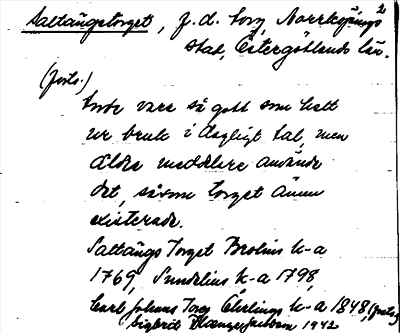 2
Saltängstorget, f.d. torg, Norrköpings
stad, Östergötlands län.
(forts.)
torde vara så gott som helt
ur bruk i dagligt tal, men
äldre meddelare använde
det, såsom torget ännu
existerade.
Saltängs Torget Brolins k-a
1769, Sundelius k-a 1798,
Carl Johans Torg Ehrlings k-a 1848,
Sigbrit 1942